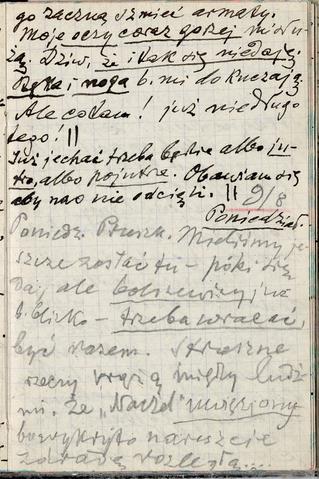 go zaczną grzmieć armaty.
Moje oczy coraz gorzej mi słu-
żą. Dziw, że i tak się nie dają.
Ręka i noga b. mi dokuczają
Ale cotam! już niedługo
tego! ||
Już jechać trzeba będzie albo ju-
tro, albo pojutrze. Obawiam się
aby nas nie odcięli. || 9/8
Poniedział.
Poniedz. Mieliśmy je-
szcze zostać tu – póki się
da, ale bolszewicy już
b. blizko – trzeba wracać,
być razem. Straszne
rzeczy między ludź-
mi. Że „Naczel"
bo wykryto nareszcie
zdradę